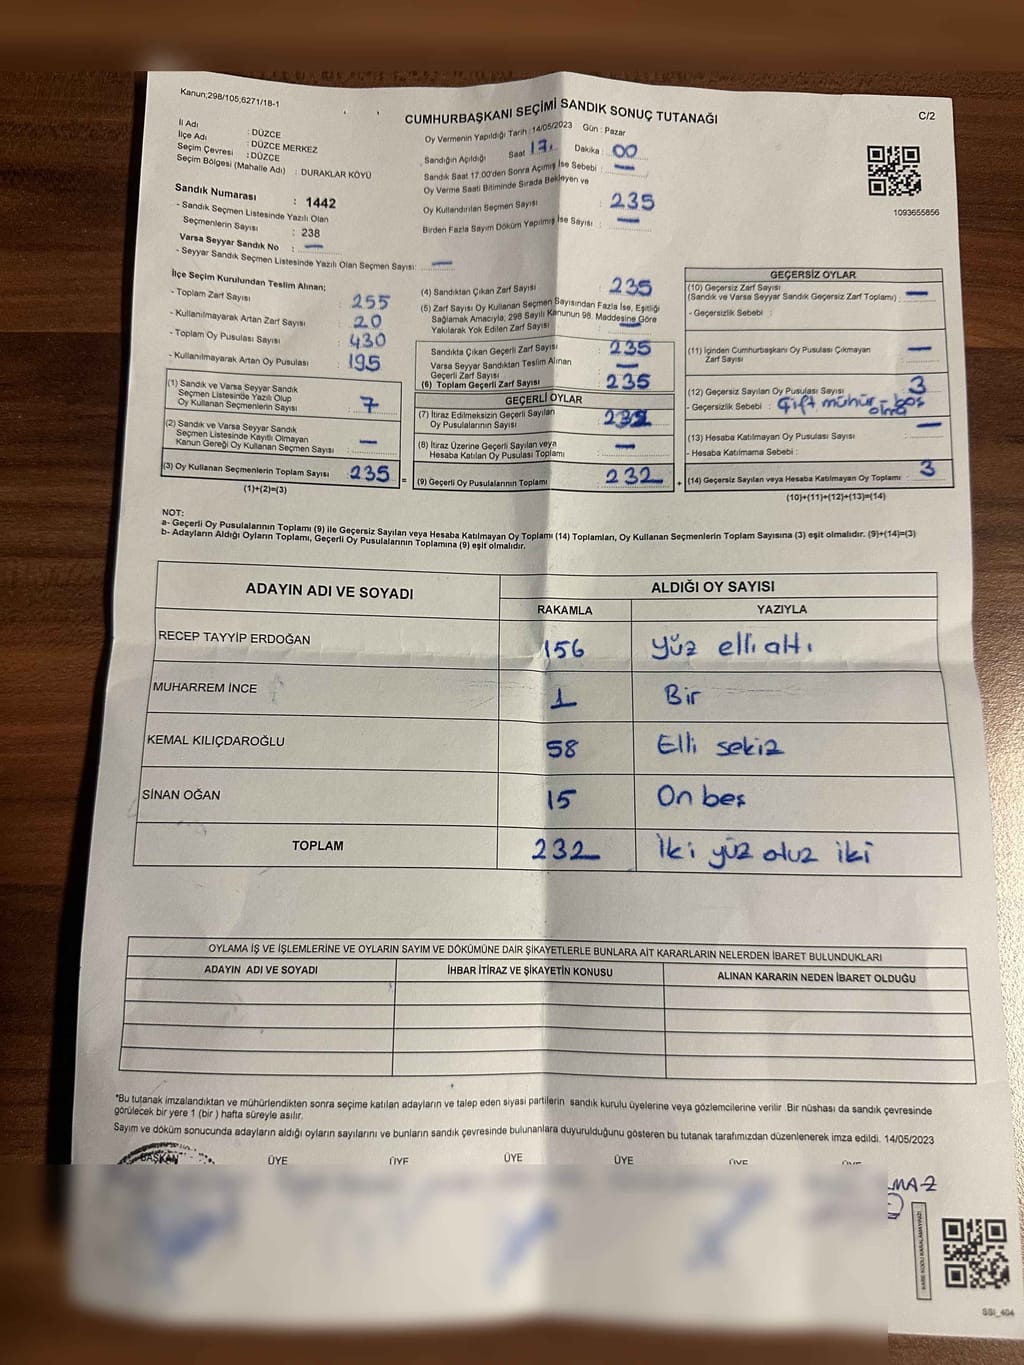 Kanun;298/105,6271/18-1
CUMHURBAŞKANI SEÇİMİ SANDIK SONUÇ TUTANAĞI
C/2
İl Adı : DÜZCE
İlçe Adı : DÜZCE MERKEZ
Seçim Çevresi : DÜZCE
Seçim Bölgesi (Mahalle Adı) : DURAKLAR KÖYÜ
Sandık Numarası : 1442
- Sandık Seçmen Listesinde Yazılı Olan
Seçmenlerin Sayısı : 238
Varsa Seyyar Sandık No : —
- Seyyar Sandık Seçmen Listesinde Yazılı Olan Seçmen Sayısı: —
Oy Vermenin Yapıldığı Tarih : 14/05/2023 Gün : Pazar
Sandığın Açıldığı Saat 17. Dakika : 00
Sandık Saat 17.00'den Sonra Açımış İse Sebebi : —
Oy Verme Saati Bitiminde Sırada Bekleyen ve
Oy Kullandırılan Seçmen Sayısı : 235
Birden Fazla Sayım Döküm Yapılmış İse Sayısı : —
1093655856
İlçe Seçim Kurulundan Teslim Alınan;
- Toplam Zarf Sayısı : 255
- Kullanılmayarak Artan Zarf Sayısı : 20
- Toplam Oy Pusulası Sayısı : 430
- Kullanılmayarak Artan Oy Pusulası : 195
(1) Sandık ve Varsa Seyyar Sandık
Seçmen Listesinde Yazılı Olup
Oy Kullanan Seçmenlerin Sayısı : 7
(2) Sandık ve Varsa Seyyar Sandık
Seçmen Listesinde Kayıtlı Olmayan
Kanun Gereği Oy Kullanan Seçmen Sayısı : —
(3) Oy Kullanan Seçmenlerin Toplam Sayısı : 235
(1)+(2)=(3)
(4) Sandıktan Çıkan Zarf Sayısı : 235
(5) Zarf Sayısı Oy Kullanan Seçmen Sayısından Fazla İse, Eşitliği
Sağlamak Amacıyla, 298 Sayılı Kanunun 98. Maddesine Göre
Yakılarak Yok Edilen Zarf Sayısı : —
Sandıkta Çıkan Geçerli Zarf Sayısı : 235
Varsa Seyyar Sandıktan Teslim Alınan
Geçerli Zarf Sayısı : —
(6) Toplam Geçerli Zarf Sayısı : 235
GEÇERLİ OYLAR
(7) İtiraz Edilmeksizin Geçerli Sayılan
Oy Pusulalarının Sayısı : 232
(8) İtiraz Üzerine Geçerli Sayılan veya
Hesaba Katılan Oy Pusulası Toplamı : —
= (9) Geçerli Oy Pusulalarının Toplamı : 232
GEÇERSİZ OYLAR
(10) Geçersiz Zarf Sayısı
(Sandık ve Varsa Seyyar Sandık Geçersiz Zarf Toplamı) : —
- Geçersizlik Sebebi :
(11) İçinden Cumhurbaşkanı Oy Pusulası Çıkmayan
Zarf Sayısı : —
(12) Geçersiz Sayılan Oy Pusulası Sayısı : 3
- Geçersizlik Sebebi : Çift mühür - boş
olma
(13) Hesaba Katılmayan Oy Pusulası Sayısı : —
- Hesaba Katılmama Sebebi :
+ (14) Geçersiz Sayılan veya Hesaba Katılmayan Oy Toplamı : 3
(10)+(11)+(12)+(13)=(14)
NOT:
a- Geçerli Oy Pusulalarının Toplamı (9) ile Geçersiz Sayılan veya Hesaba Katılmayan Oy Toplamı (14) Toplamları, Oy Kullanan Seçmenlerin Toplam Sayısına (3) eşit olmalıdır. (9)+(14)=(3)
b- Adayların Aldığı Oyların Toplamı, Geçerli Oy Pusulalarının Toplamına (9) eşit olmalıdır.
ADAYIN ADI VE SOYADI
ALDIĞI OY SAYISI
RAKAMLA YAZIYLA
RECEP TAYYİP ERDOĞAN 156 Yüz elli altı
MUHARREM İNCE 1 Bir
KEMAL KILIÇDAROĞLU 58 Elli sekiz
SİNAN OĞAN 15 On beş
TOPLAM 232 İki yüz otuz iki
OYLAMA İŞ VE İŞLEMLERİNE VE OYLARIN SAYIM VE DÖKÜMÜNE DAİR ŞİKAYETLERLE BUNLARA AİT KARARLARIN NELERDEN İBARET BULUNDUKLARI
ADAYIN ADI VE SOYADI İHBAR İTİRAZ VE ŞİKAYETİN KONUSU ALINAN KARARIN NEDEN İBARET OLDUĞU
*Bu tutanak imzalandıktan ve mühürlendikten sonra seçime katılan adayların ve talep eden siyasi partilerin sandık kurulu üyelerine veya gözlemcilerine verilir .Bir nüshası da sandık çevresinde
görülecek bir yere 1 (bir ) hafta süreyle asılır.
Sayım ve döküm sonucunda adayların aldığı oyların sayılarını ve bunların sandık çevresinde bulunanlara duyurulduğunu gösteren bu tutanak tarafımızdan düzenlenerek imza edildi. 14/05/2023
BAŞKAN ÜYE ÜYE ÜYE ÜYE ÜYE ÜYE
MAZ
KARE KODU KARALAMAYINIZ!
SSI_404